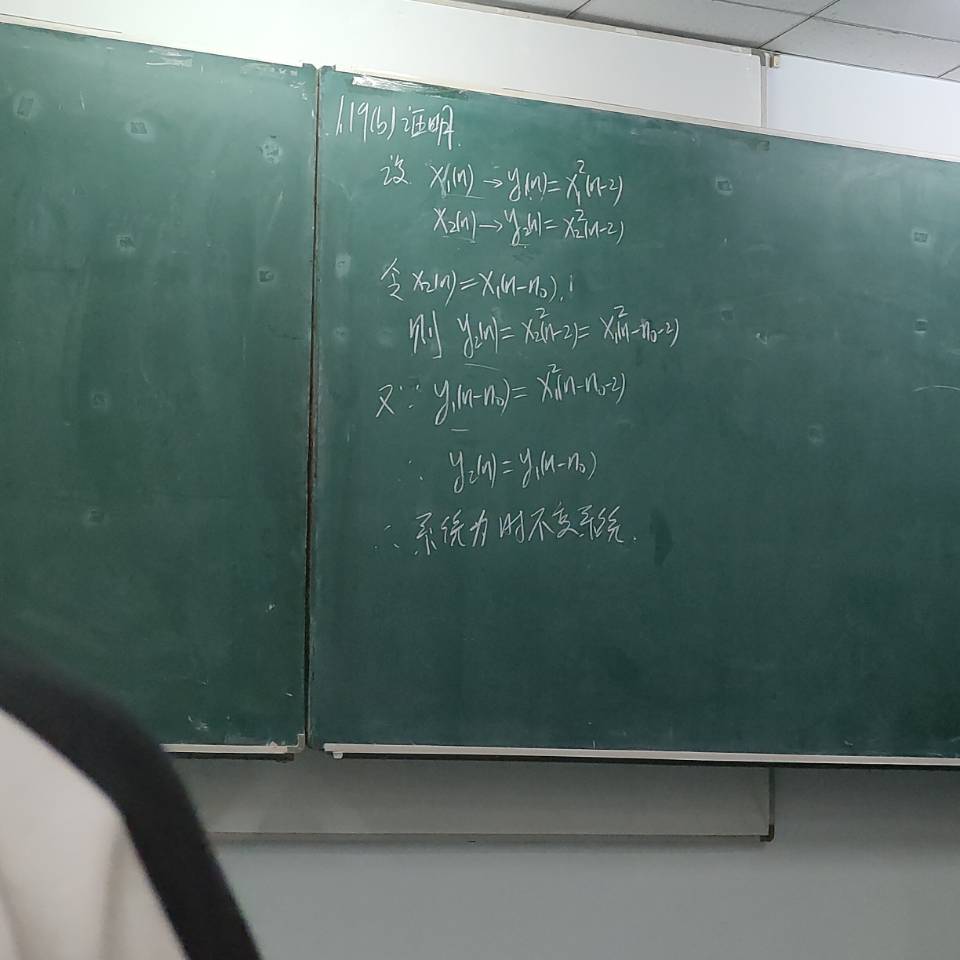 1.19(b) 证明
设 x₁(n) → y₁(n) = x₁²(n-2)
x₂(n) → y₂(n) = x₂²(n-2)
令 x₂(n) = x₁(n-n₀).
则 y₂(n) = x₂²(n-2) = x₁²(n-n₀-2)
又∵ y₁(n-n₀) = x₁²(n-n₀-2)
∴ y₂(n) = y₁(n-n₀)
∴ 系统为时不变系统.